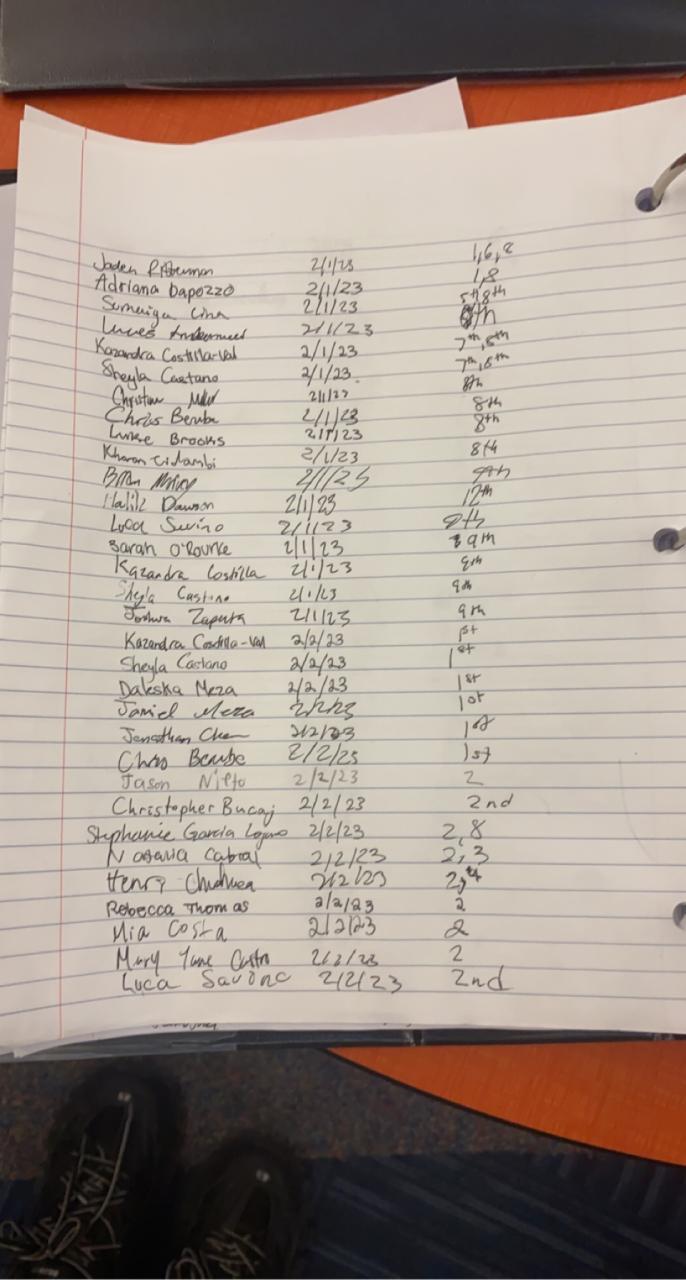 Jaden 2/1/23 1,6,8
Adriana Dapozzo 2/1/23 1,8
2/1/23 5th 8th
2/1/23 8th
Kazandra Costilla-Val 2/1/23 7th, 8th
Sheyla Castano 2/1/23 7th, 8th
Christian 2/1/23 8th
Chris Bembe 2/1/23 8th
Brooks 2/1/23 8th
2/1/23 8th
2/1/23 9th
Dawson 2/1/23 12th
Luca 2/1/23 9th
Sarah O'Rourke 2/1/23 9th
Kazandra Costilla 2/1/23
Sheyla 2/1/23 9th
Joshua Zaputa 2/1/23 9th
Kazandra Costilla-Val 2/2/23 1st
Sheyla Castano 2/2/23 1st
Daleska Meza 2/2/23 1st
Meza 2/2/23 1st
Jonathan 2/2/23 1st
Chris Bembe 2/2/23 1st
Jason Nieto 2/2/23 2
Christopher Bucaj 2/2/23 2nd
Stephanie Garcia 2/2/23 2,8
Natavia Cabral 2/2/23 2,3
Henry 2/2/23
Rebecca Thomas 2/2/23 2
Mia Costa 2/2/23 2
Mary Jane Castro 2/2/23 2
Luca Savino 2/2/23 2nd